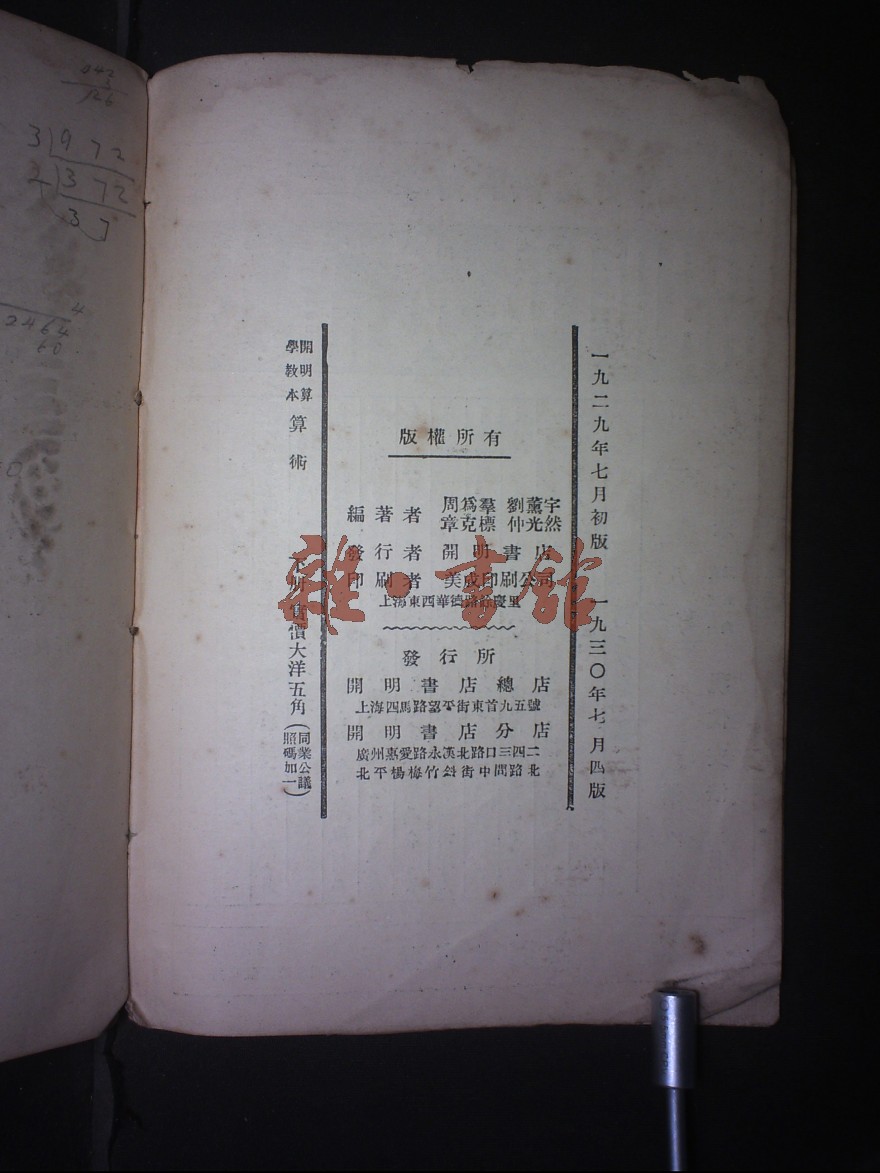 一九二九年七月初版 一九三〇年七月四版
版權所有
編著者 周爲羣 劉薰宇
章克標 仲光然
發行者 開明書店
印刷者 美成印刷公司
上海東西華德路餘慶里
發行所
開明書店總店
上海四馬路望平街東首九五號
開明書店分店
廣州惠愛路永漢北路口三四二
北平楊梅竹斜街中間路北
開明算學教本 算術
下冊 實價大洋五角 (同業公議照碼加一)
雜·書館
3 972
2 372
37
2464
60
126